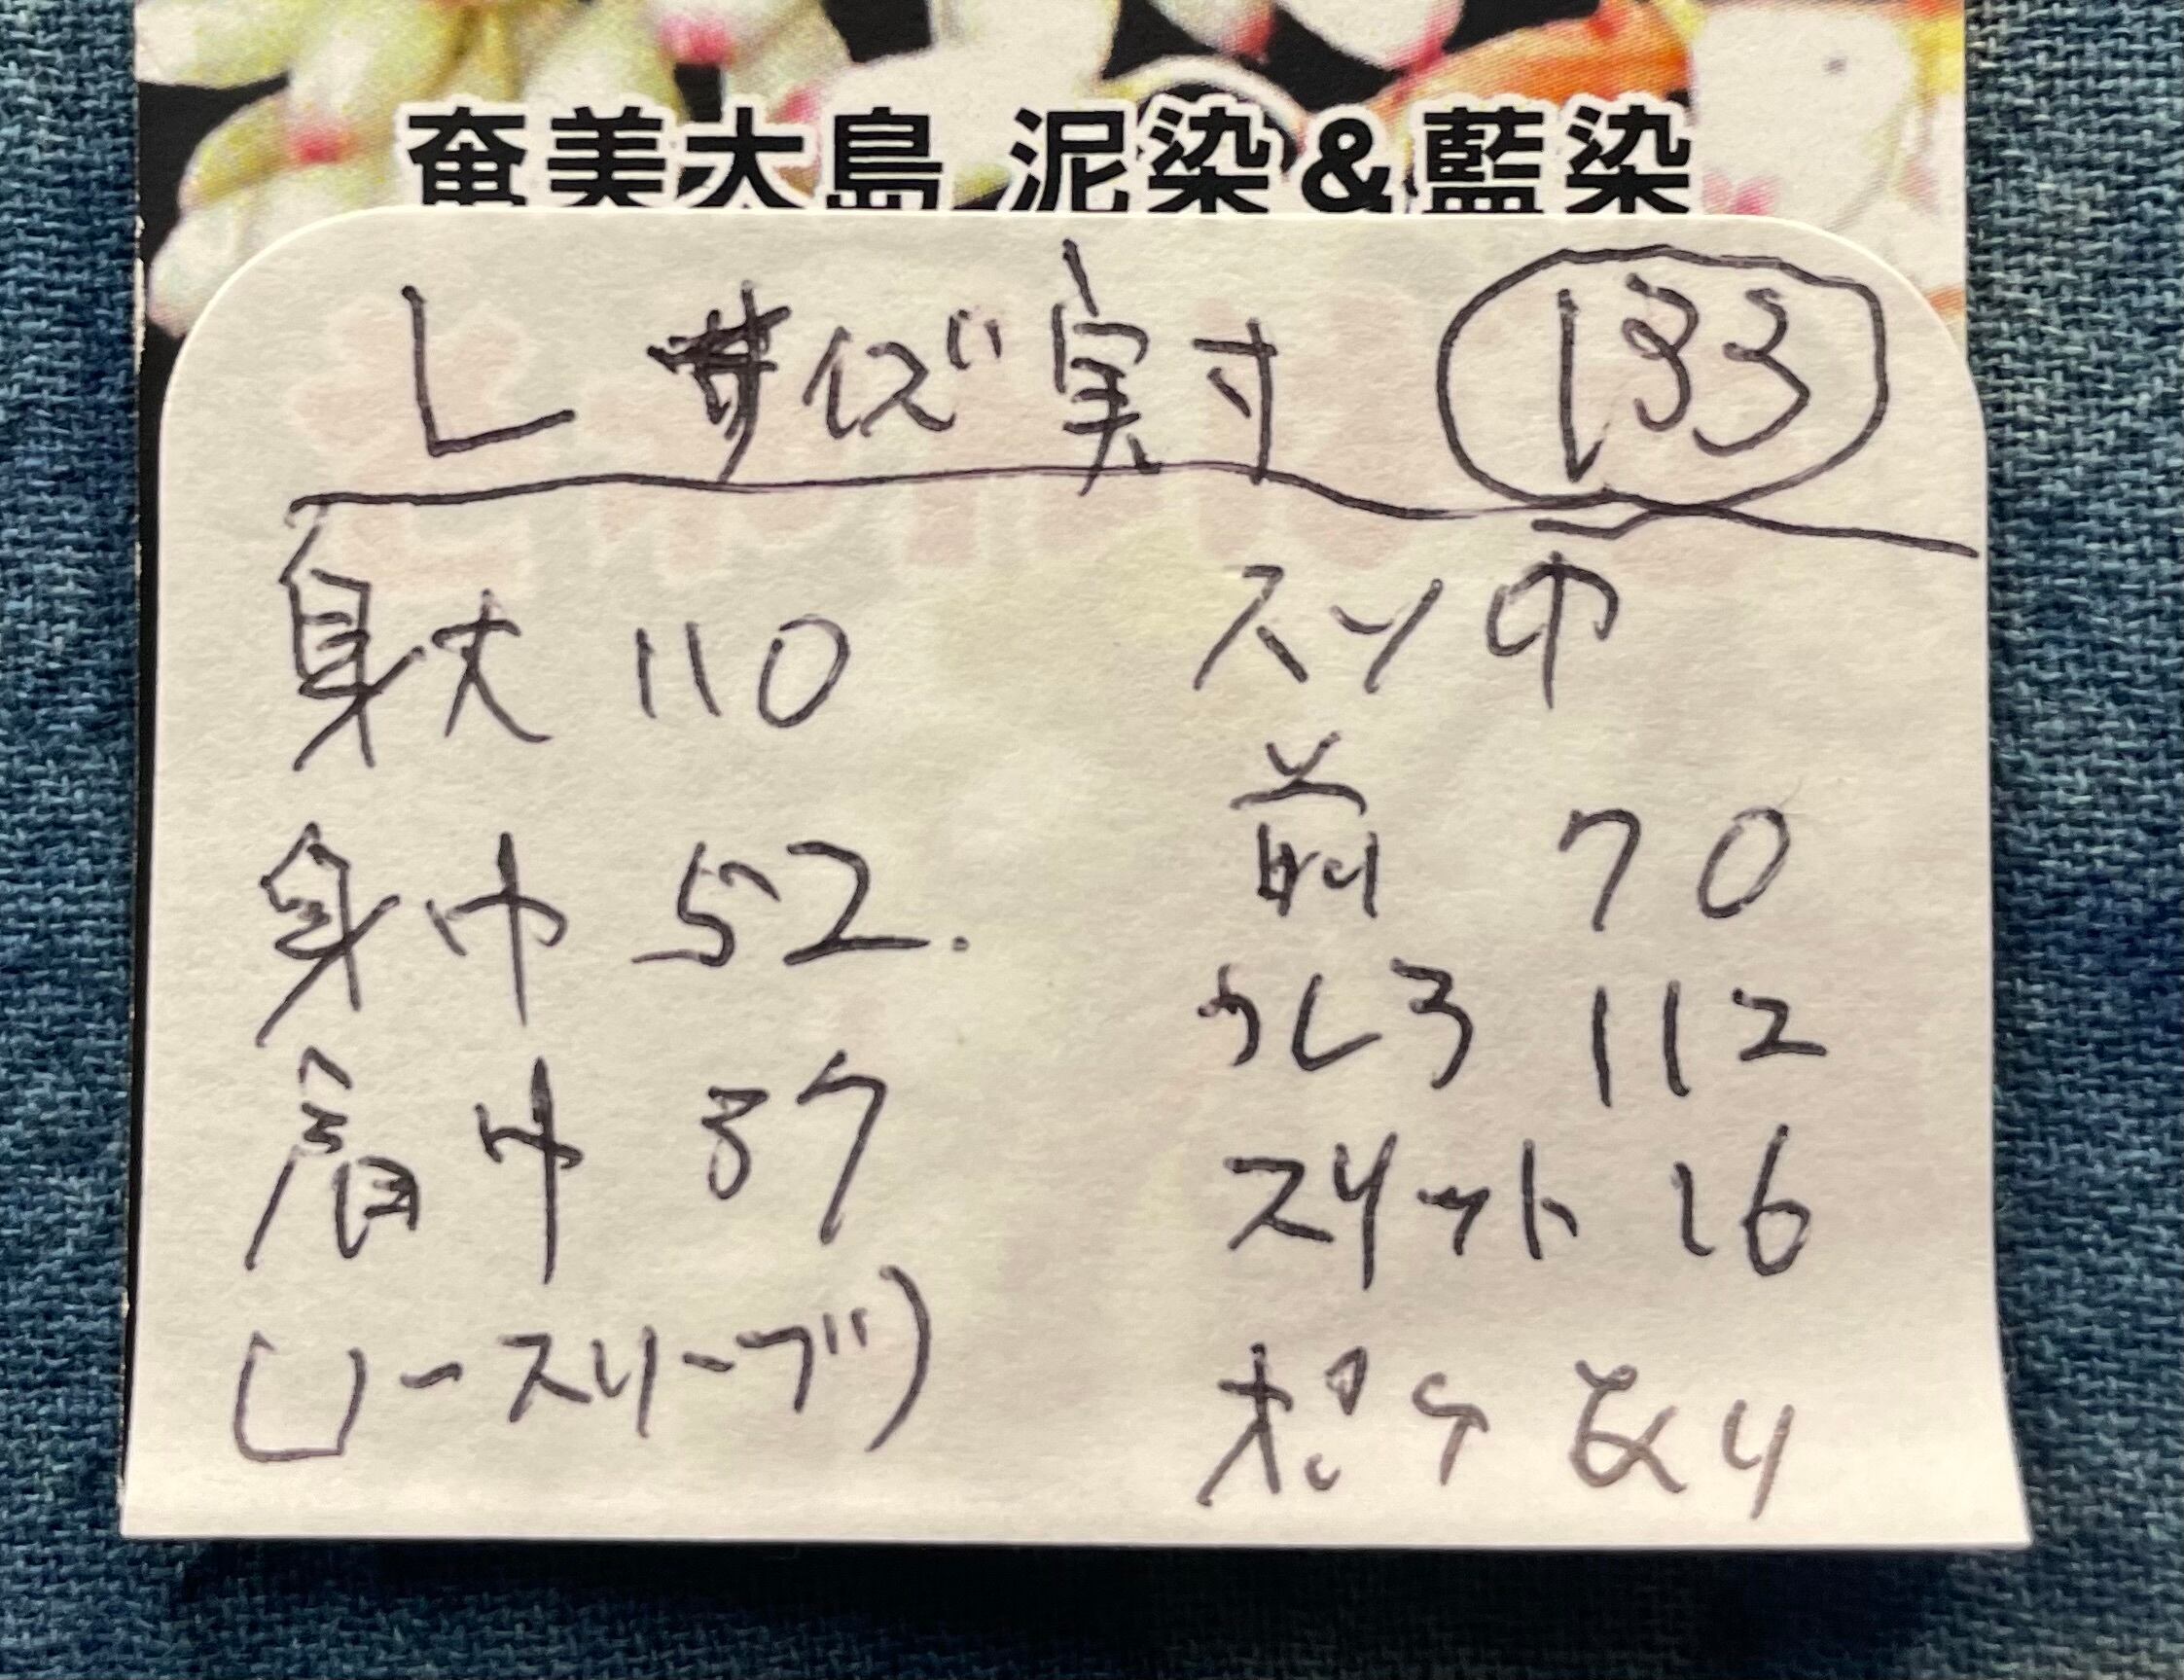 奄美大島 泥染&藍染
L サイズ 実寸 133
身丈 110
身巾 52.
肩巾 37
(ノースリーブ)
スソ巾
前 70
うしろ 112
スリット 16